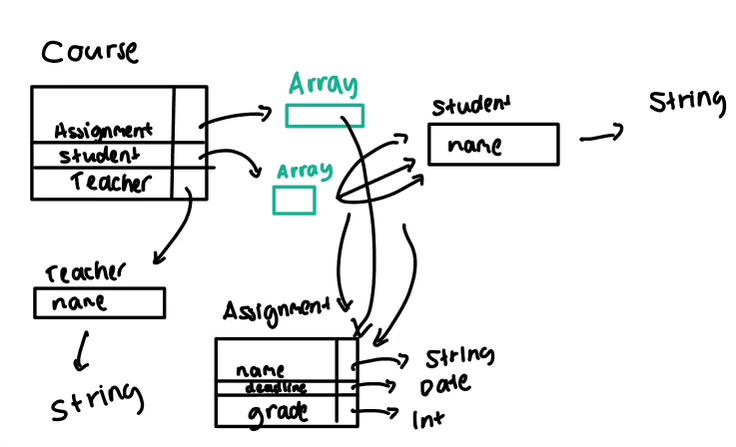 Course
Array
Assignment
student
Teacher
Array
student
name
String
Teacher
name
String
Assignment
name
deadline
grade
String
Date
Int